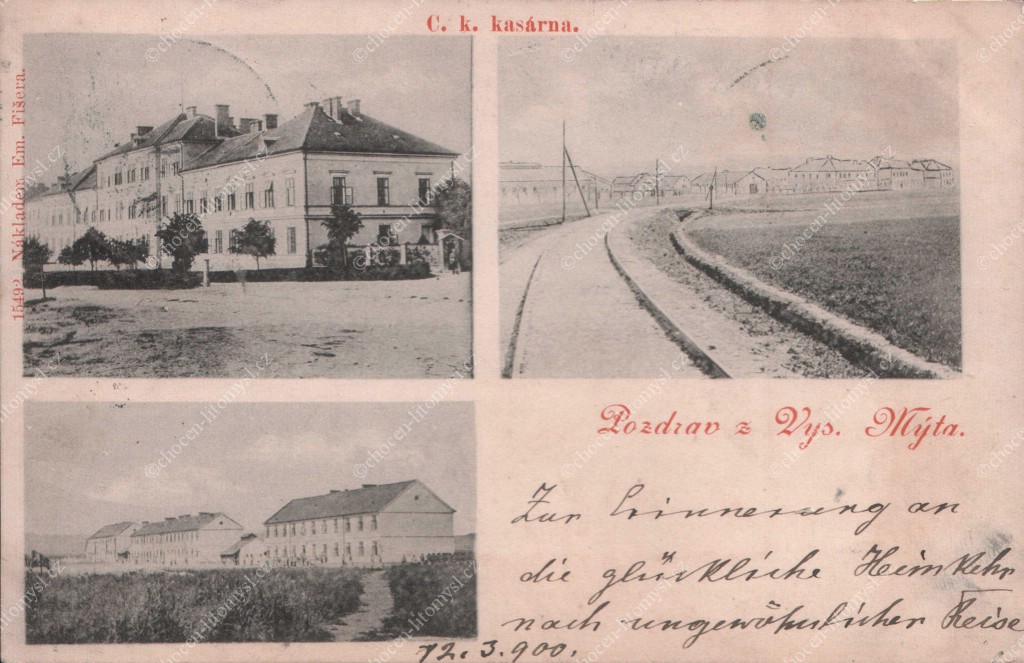 C. k. kasárna.
15492 Nákladem Em. Fišera.
Pozdrav z Vys. Mýta.
Zur Erinnerung an
die glückliche Heimkehr
nach ungewöhnlicher Reise
12. 3. 900.
©chocen-litomysl.cz